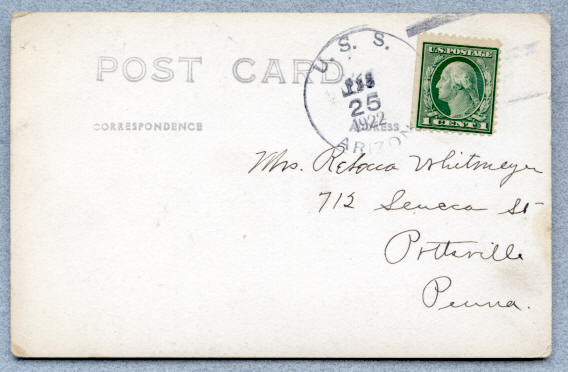 POST CARD
CORRESPONDENCE
ADDRESS
U. S. S.
25
1922
ARIZON
U.S. POSTAGE
1 CENT 1
Mrs. Rebecca Whitmeyer
712 Seneca St
Pottsville
Penna.